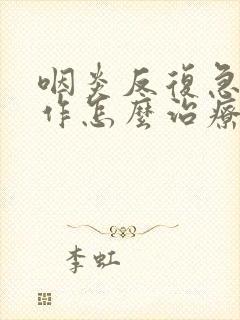 咽炎反復急
作怎麼治療
李虹